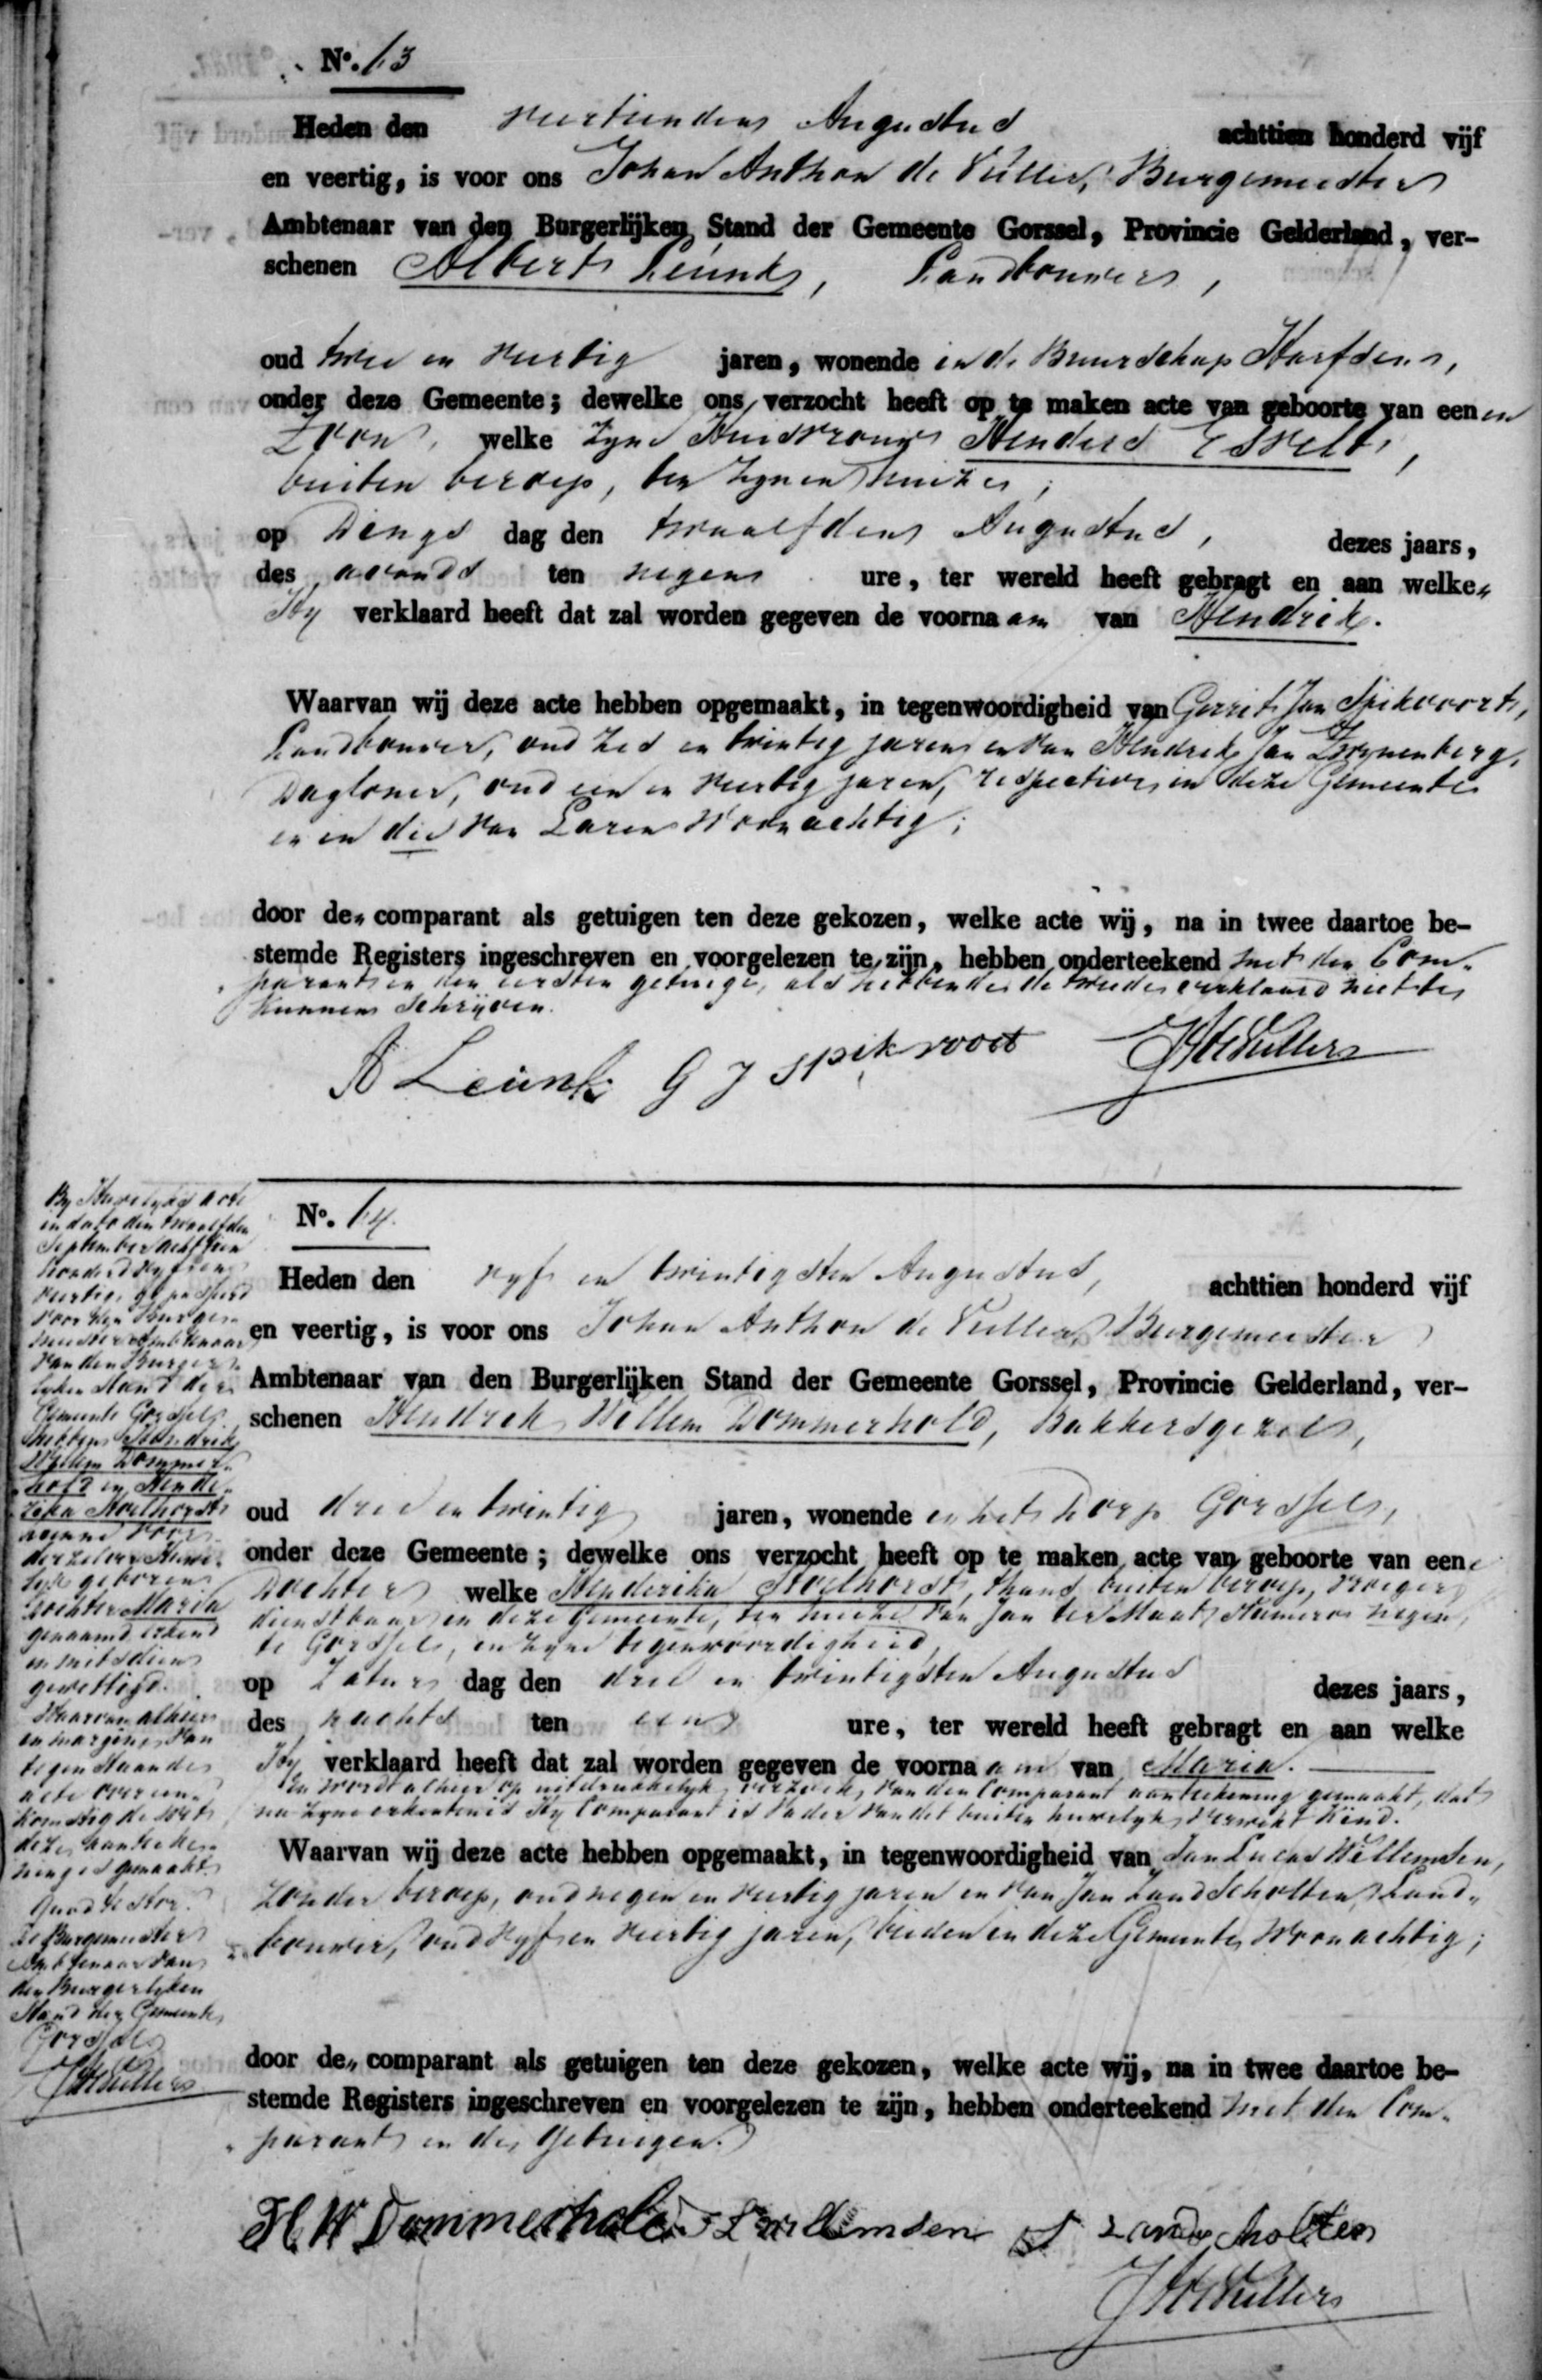 No. 13
Heden den veertienden Augustus achttien honderd vijf
en veertig, is voor ons Johan Anthon de Vullers, Burgemeester
Ambtenaar van den Burgerlijken Stand der Gemeente Gorssel, Provincie Gelderland, ver-
schenen Albert Leunk, Landbouwer,
oud twee en veertig jaren, wonende in de Buurschap Harfsen,
onder deze Gemeente; dewelke ons verzocht heeft op te maken acte van geboorte van eenen
Zoon, welke zyne Huisvrouw Henders Esselt,
buiten beroep, ten zynen huize,
op Dings dag den twaalfden Augustus, dezes jaars,
des avonds ten negen ure, ter wereld heeft gebragt en aan welke„
Hy verklaard heeft dat zal worden gegeven de voornaam van Hendrik.
Waarvan wij deze acte hebben opgemaakt, in tegenwoordigheid van Gerrit Jan Spikvoort,
Landbouwer, oud zes en twintig jaren en van Hendrik Jan Zwynenberg,
Dagloner, oud een en veertig jaren, respective in deze Gemeente
en in die van Laren woonachtig;
door de„ comparant als getuigen ten deze gekozen, welke acte wij, na in twee daartoe be-
stemde Registers ingeschreven en voorgelezen te zijn, hebben onderteekend met den Com-
parant en den eersten getuige, als hebbende de tweede verklaard niet te
kunnen schryven.
A Leunk G J Spikvoort JAdVullers
By Huwelyks acte
in dato den twaalfden
September achttien
honderd vyf en
veertig, gepasseerd
voor den Burge-
meester Ambtenaar
van den Burger-
lyken Stand der
Gemeente Gorssel
hebben Hendrik
Willem Dommer-
hold en Hende-
rika Stoelhorst
derzelver Huwe-
lyk geboren
dochter Maria
genaamd erkend
en mitsdien
gewettigd.
Waarvan alhier
in margine van
tegenstaande
acte overeen-
komstig de Wet
deze aanteeke-
ning is gemaakt.
Quod Testor.
De Burgemeester
Ambtenaar van
den Burgerlyken
Stand der Gemeente
Gorssel
JAdVullers
No. 14.
Heden den vyf en twintigsten Augustus, achttien honderd vijf
en veertig, is voor ons Johan Anthon de Vullers, Burgemeester
Ambtenaar van den Burgerlijken Stand der Gemeente Gorssel, Provincie Gelderland, ver-
schenen Hendrik Willem Dommerhold, Bakkersgezel,
oud drie en twintig jaren, wonende in het Dorp Gorssel,
onder deze Gemeente; dewelke ons verzocht heeft op te maken acte van geboorte van eene
Dochter welke Henderika Stoelhorst, thans buiten beroep, vroeger
dienstbaar in deze Gemeente, ten huize van Jan ter Maat, Numero negen,
te Gorssel, in zyne tegenwoordigheid,
op Zaturs dag den drie en twintigsten Augustus dezes jaars,
des nachts ten een ure, ter wereld heeft gebragt en aan welke
Hy verklaard heeft dat zal worden gegeven de voornaam van Maria.
En wordt alhier op uitdrukkelyk verzoek van den Comparant aanteekening gemaakt, dat
na zyne erkentenis Hy Comparant is Vader van dit buiten huwelyk verwekt Kind.
Waarvan wij deze acte hebben opgemaakt, in tegenwoordigheid van Jan Lucas Willemsen,
zonder beroep, oud negen en veertig jaren en van Jan Zandscholten, Land-
bouwer, oud vyf en veertig jaren, beiden in deze Gemeente woonachtig;
door de„ comparant als getuigen ten deze gekozen, welke acte wij, na in twee daartoe be-
stemde Registers ingeschreven en voorgelezen te zijn, hebben onderteekend met den Com-
parant en de Getuigen.
H W Dommerhold J L Willemsen J Zandscholten
JAdVullers